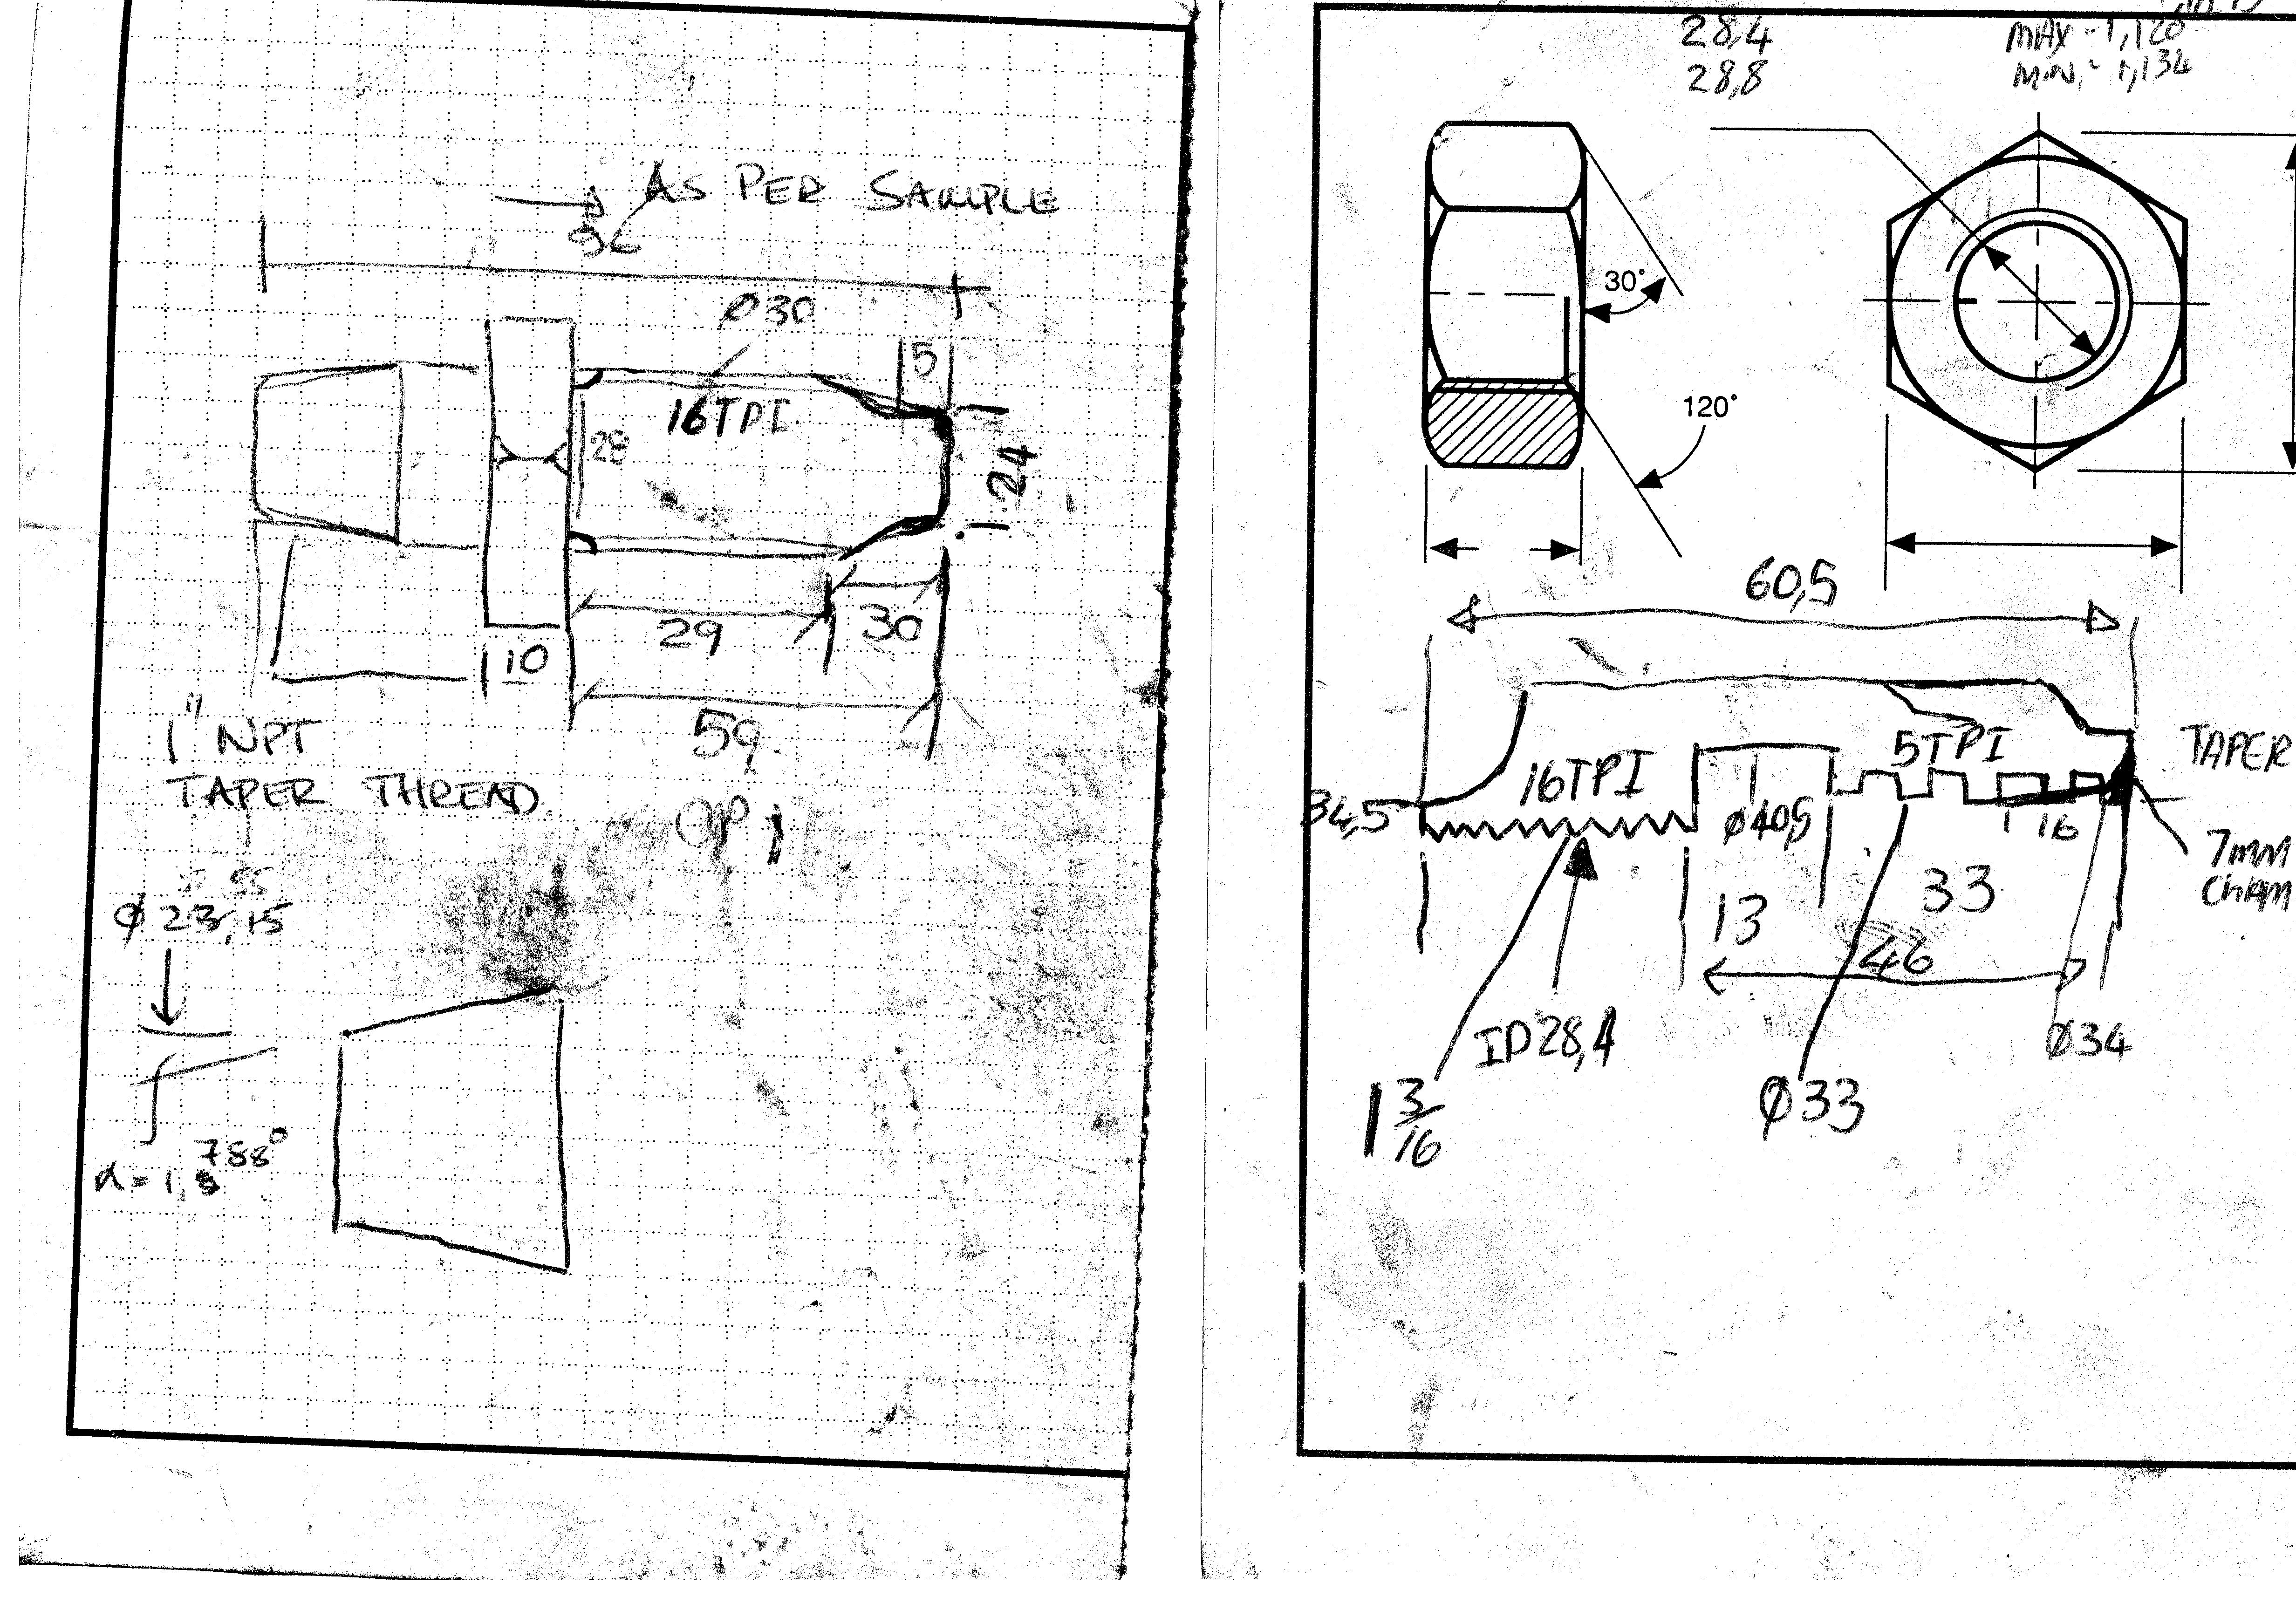 AS PER SAMPLE
Ø30
5
16TPI
28
24
29
30
10
59
1" NPT
TAPER THREAD
OP 1
Ø 23,15
788°
α = 1,
28,4
28,8
MAX - 1,120
MIN. - 1,134
30°
120°
60,5
34,5
16TPI
5TPI
TAPER
Ø40,5
1 16
7mm
CHAM
13
33
46
ID 28,4
Ø34
1 3/16
Ø33